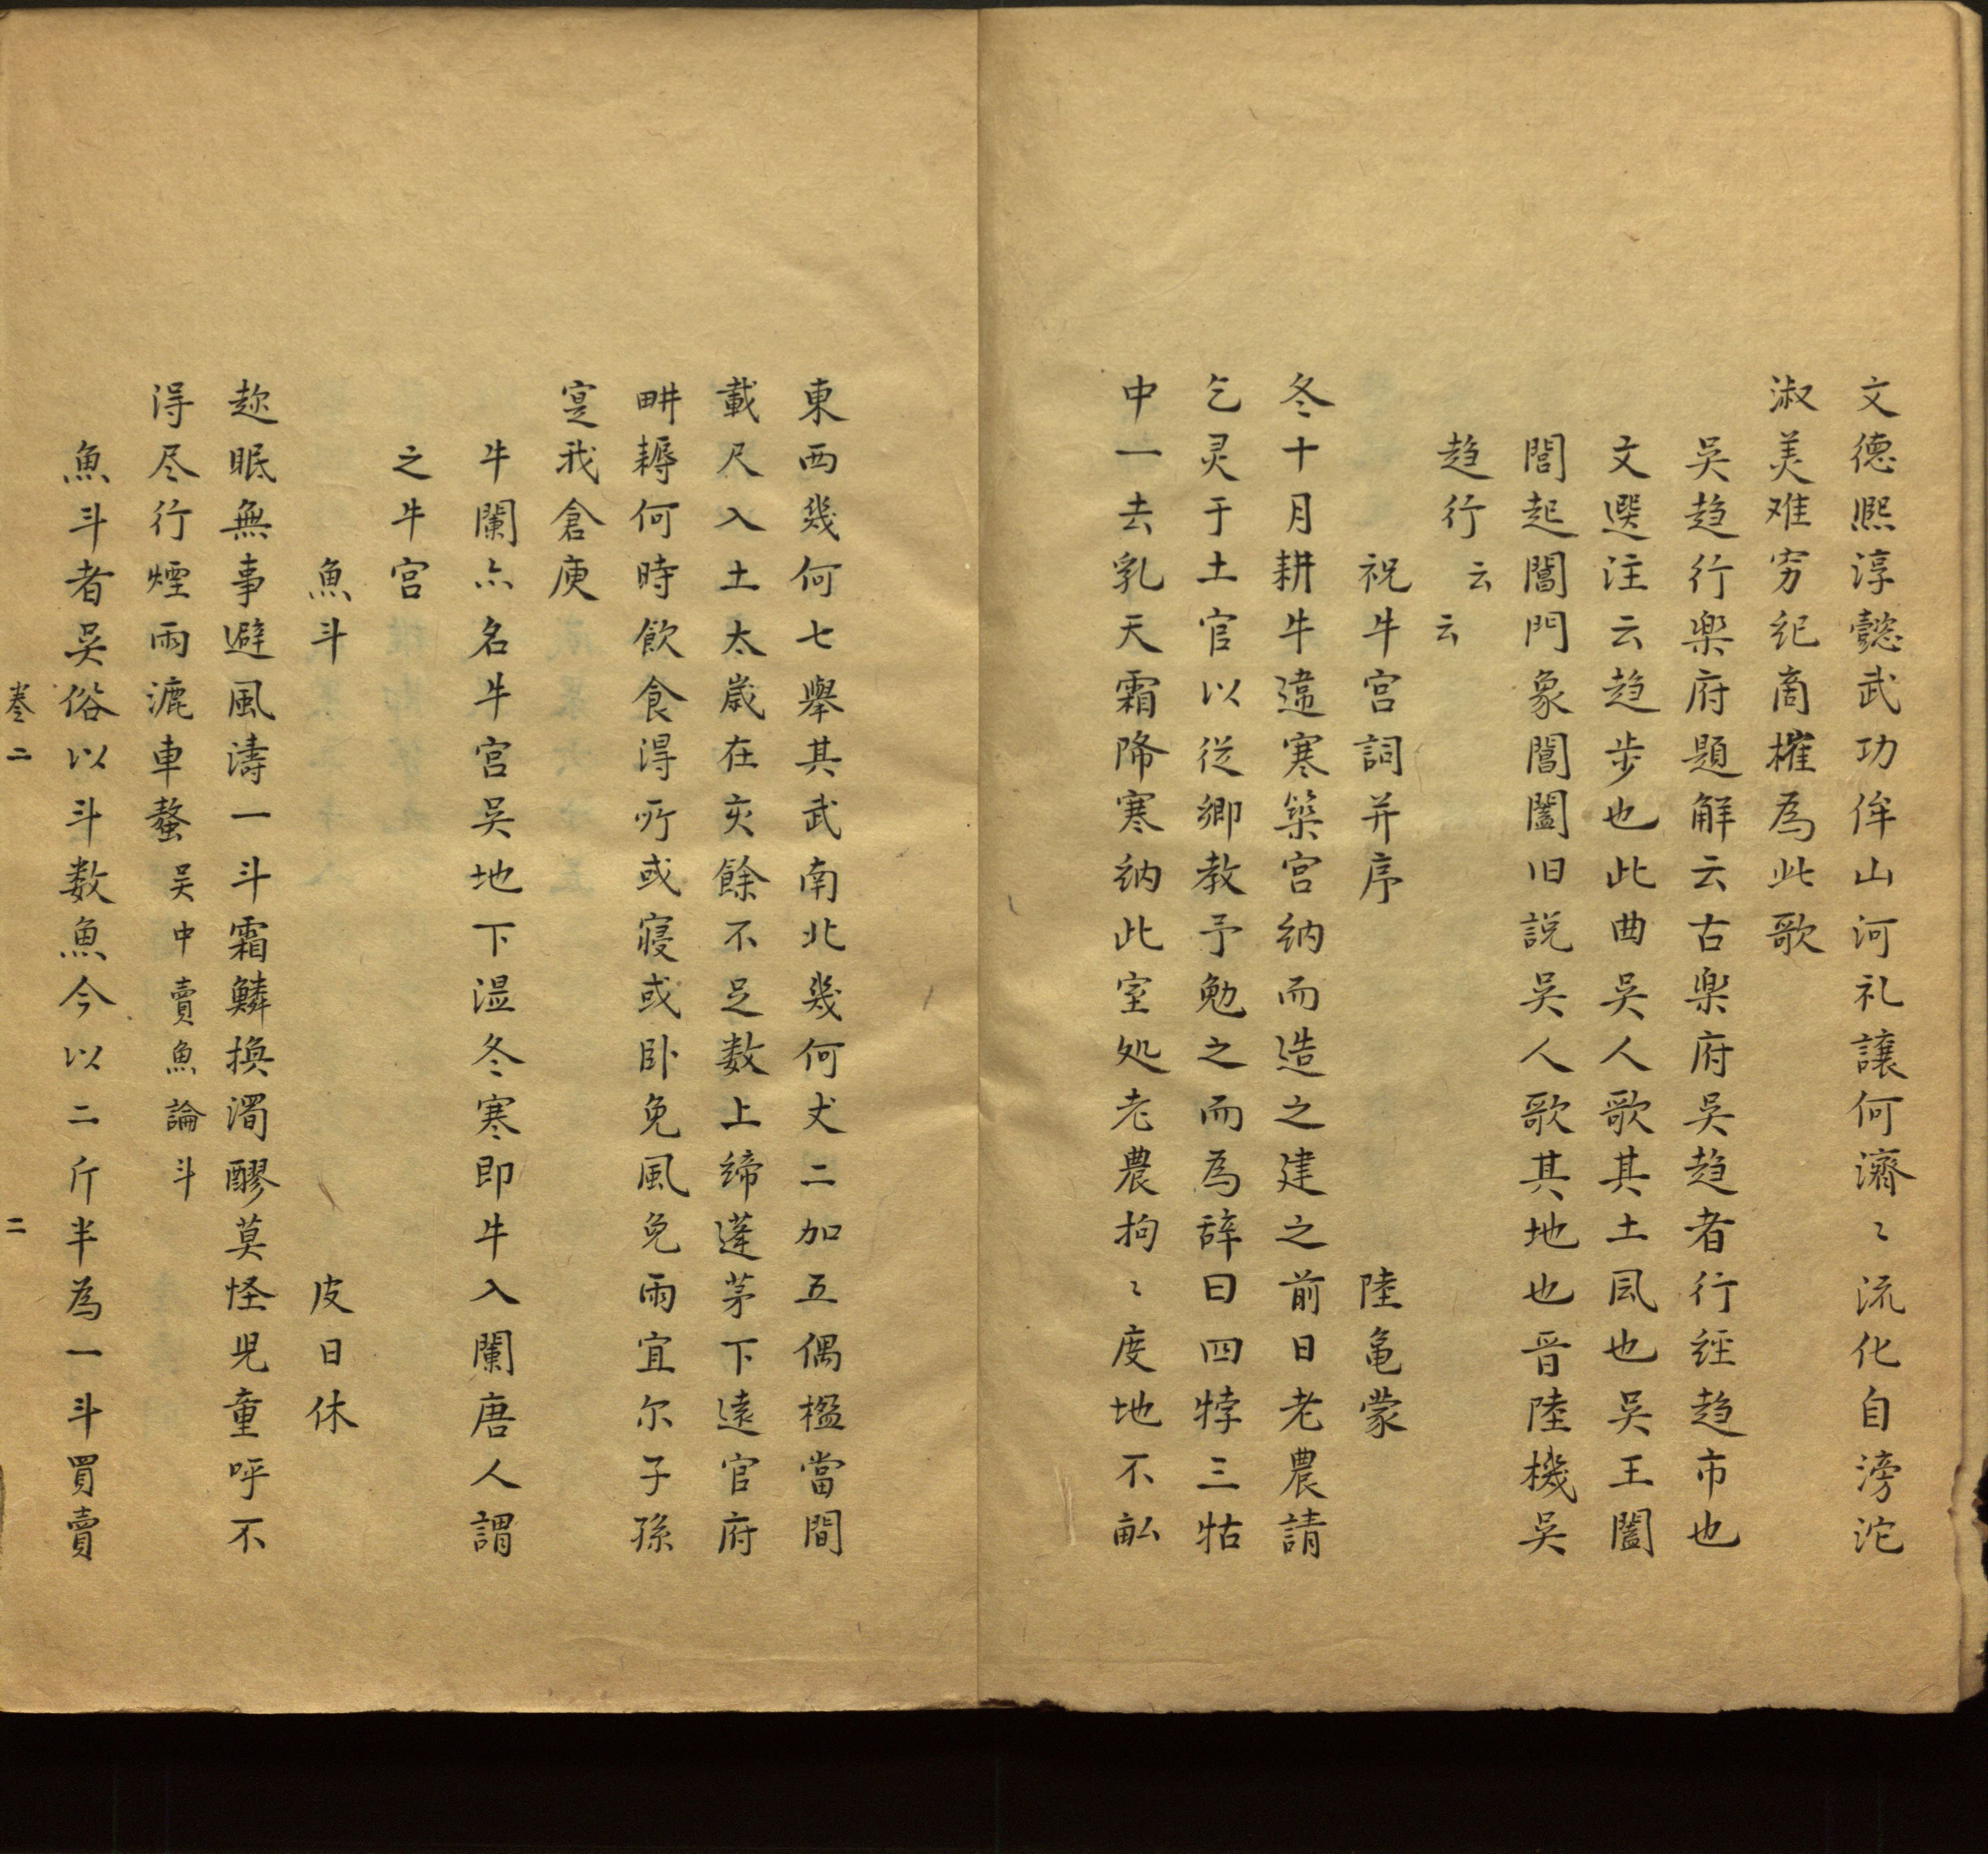 文德熙淳懿武功侔山河礼讓何濟〻流化自滂沱
淑美难穷紀商榷為此歌
吳趋行楽府題解云古楽府吳趋者行經趋市也
文選注云趋步也此曲吳人歌其土凬也吳王闔
閭起閶門象閶闔旧説吳人歌其地也晋陸機吳
趋行云云
祝牛宫詞并序　陸亀蒙
冬十月耕牛違寒築宫納而造之建之前日老農請
乞灵于土官以從鄉教予勉之而為辞曰四牸三牯
中一去乳天霜降寒納此室処老農拘〻度地不畝
東西幾何七舉其武南北幾何丈二加五偶楹當間
載尺入土太歲在亥餘不足数上締蓬茅下遠官府
畊耨何時飲食得所或寝或卧免風免雨宜尔子孫
寔我倉庾
牛闌亦名牛宫吳地下湿冬寒即牛入闌唐人謂
之牛宫
魚斗　皮日休
趂眠無事避風涛一斗霜鱗换濁醪莫怪児童呼不
得尽行煙雨漉車螯吴中賣魚論斗
魚斗者吳俗以斗数魚今以二斤半為一斗買賣
卷二　二